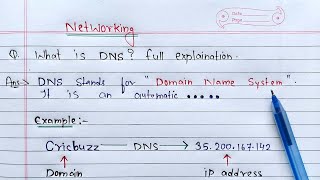 Networking
Q. What is DNS? full explaination.
Ans:- DNS Stands for "Domain Name System".
It is an automatic .....
Example:-
Cricbuzz — DNS → 35.200.167.142
Domain ip address